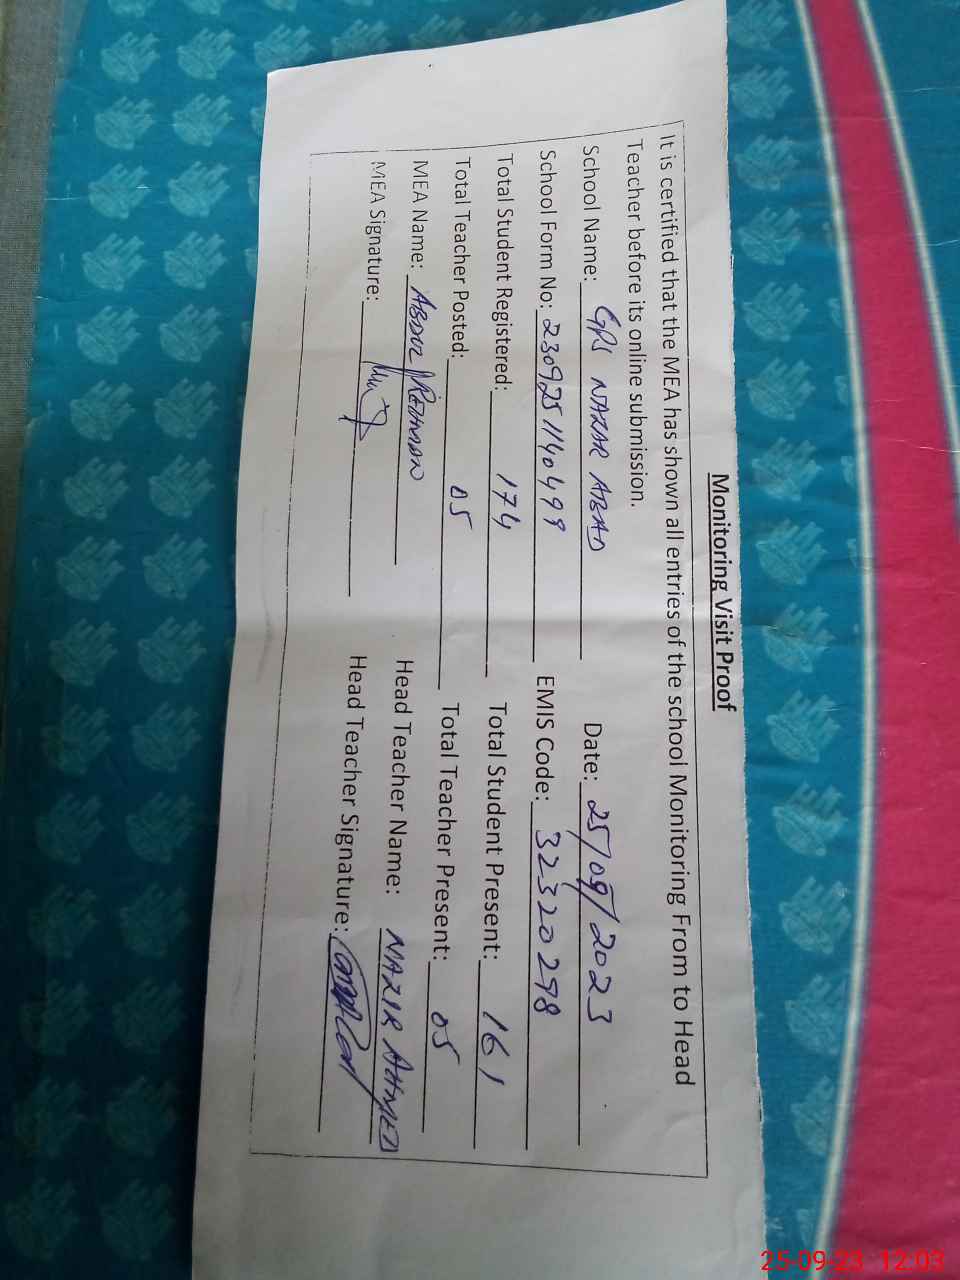 Monitoring Visit Proof
It is certified that the MEA has shown all entries of the school Monitoring From to Head
Teacher before its online submission.
School Name: GPS NAZAR ABAD Date: 25/09/2023
School Form No: 230925 1140499 EMIS Code: 32320298
Total Student Registered: 174 Total Student Present: 161
Total Teacher Posted: 05 Total Teacher Present: 05
MEA Name: ABDUL REHMAN Head Teacher Name: NAZIR AHMED
MEA Signature: Head Teacher Signature:
25-09-23 12:03